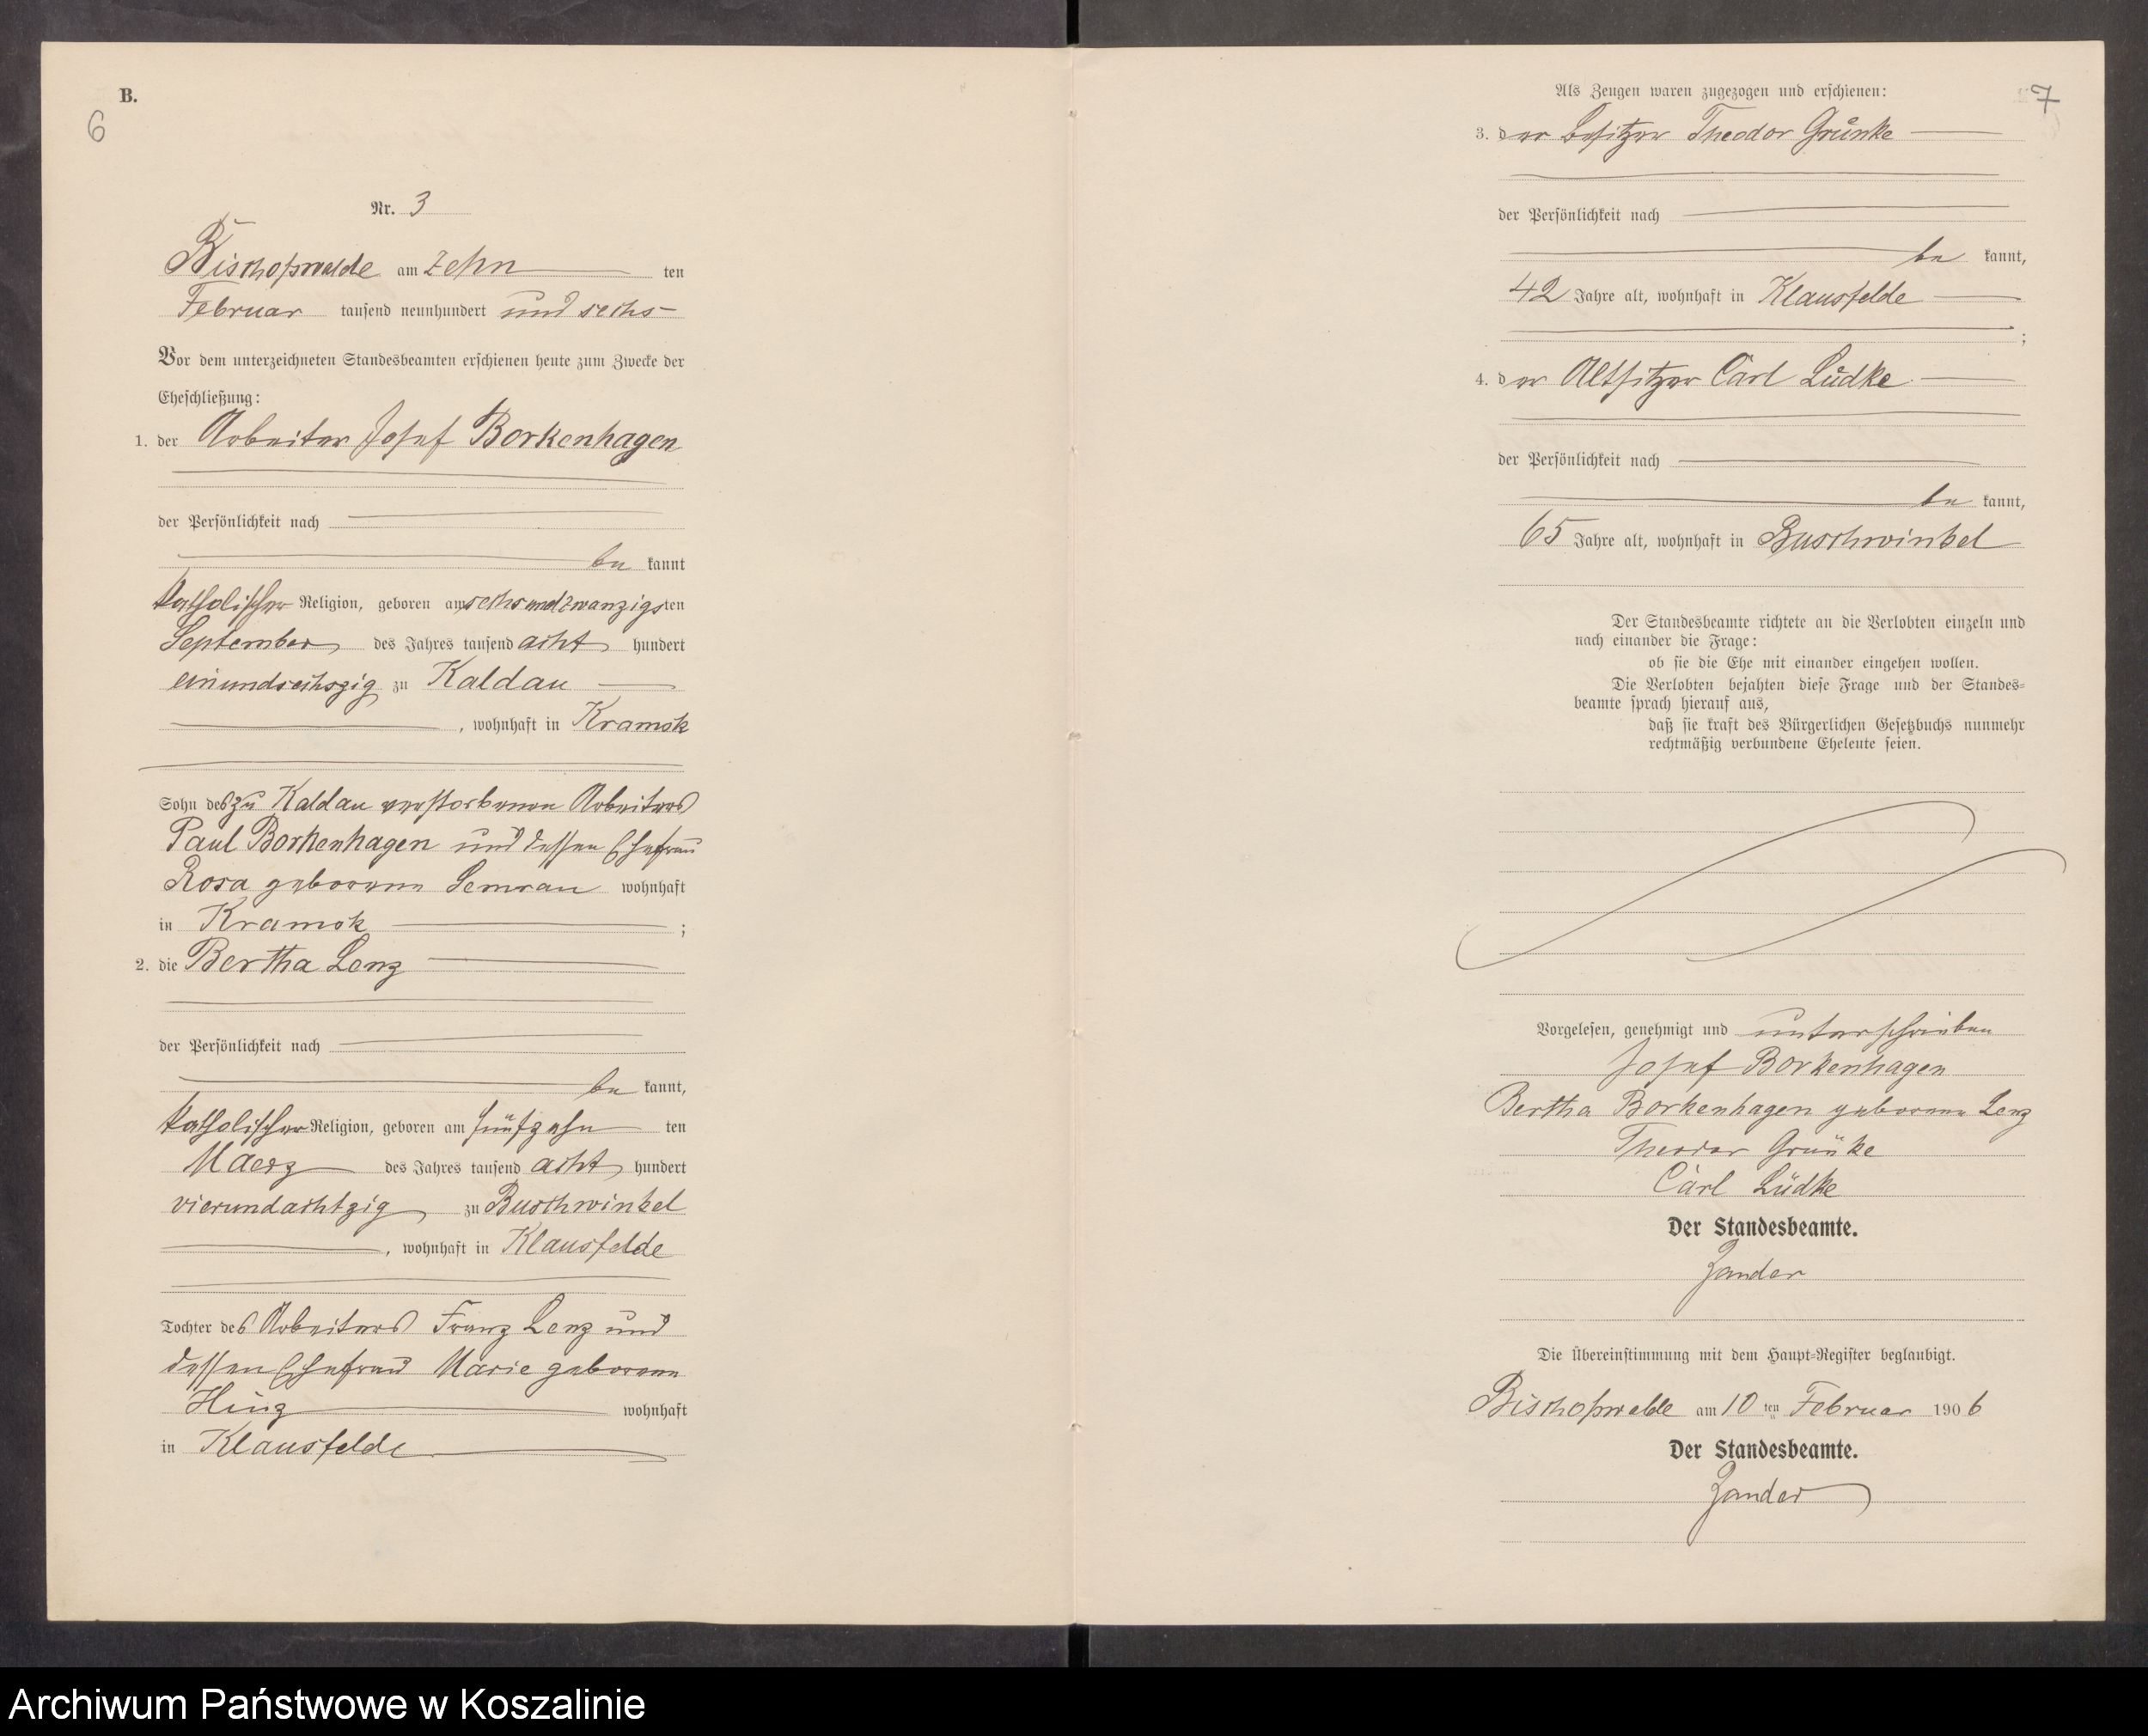 B.
6
Nr. 3
Bischofswalde am zehn ten
Februar tausend neunhundert und sechs
Vor dem unterzeichneten Standesbeamten erschienen heute zum Zwecke der
Eheschließung:
1. der Arbeiter Josef Borkenhagen
der Persönlichkeit nach
be kannt
katholischer Religion, geboren am sechsundzwanzigsten
September des Jahres tausend acht hundert
einundsechszig zu Kaldau
, wohnhaft in Kramsk
Sohn des zu Kaldau verstorbenen Arbeiters
Paul Borkenhagen und dessen Ehefrau
Rosa geborene Semrau wohnhaft
in Kramsk ;
2. die Bertha Lenz
der Persönlichkeit nach
be kannt,
katholischer Religion, geboren am fünfzehn ten
Maerz des Jahres tausend acht hundert
vierundachtzig zu Buschwinkel
, wohnhaft in Klausfelde
Tochter des Arbeiters Franz Lenz und
dessen Ehefrau Marie geborene
Hinz wohnhaft
in Klausfelde
Als Zeugen waren zugezogen und erschienen:
7
3. der Besitzer Theodor Grünke
der Persönlichkeit nach
be kannt,
42 Jahre alt, wohnhaft in Klausfelde
;
4. der Altsitzer Carl Lüdke
der Persönlichkeit nach
be kannt,
65 Jahre alt, wohnhaft in Buschwinkel
Der Standesbeamte richtete an die Verlobten einzeln und
nach einander die Frage:
ob sie die Ehe mit einander eingehen wollen.
Die Verlobten bejahten diese Frage und der Standes-
beamte sprach hierauf aus,
daß sie kraft des Bürgerlichen Gesetzbuchs nunmehr
rechtmäßig verbundene Eheleute seien.
Vorgelesen, genehmigt und unterschrieben
Josef Borkenhagen
Bertha Borkenhagen geborene Lenz
Theodor Grünke
Carl Lüdke
Der Standesbeamte.
Zander
Die Übereinstimmung mit dem Haupt-Register beglaubigt.
Bischofswalde am 10 ten Februar 1906
Der Standesbeamte.
Zander
Archiwum Państwowe w Koszalinie